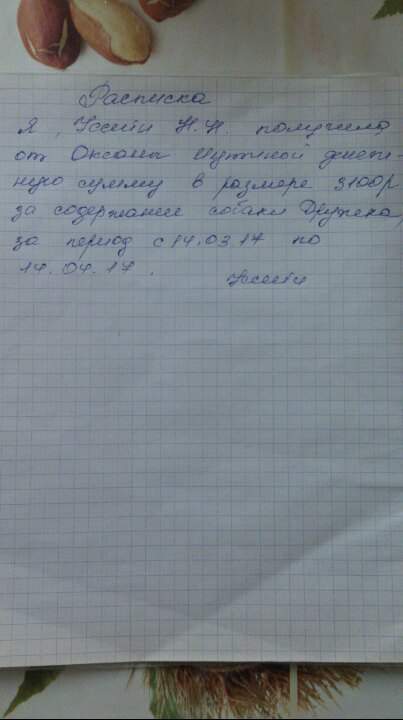 Расписка
Я, Усейн Н.Н. получила
от Оксаны денеж-
ную сумму в размере 3100р
за содержание собаки Дружка,
за период с 14.03.17 по
14.04.17.